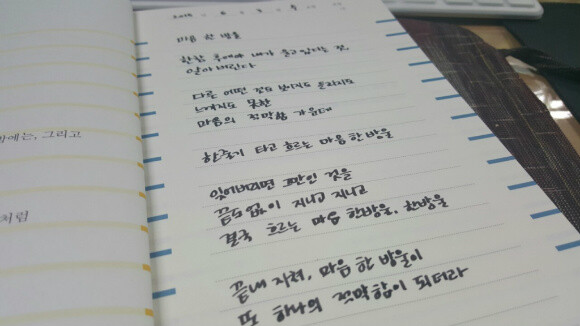 마음 한 방울
한참 후에야 내가 울고 있다는 것,
알아버린다
다른 어떤 것도 보이지도 들리지도
느껴지도 못한
마음의 적막함 가운데
한줄기 타고 흐르는 마음 한 방울
잊어버리면 그만인 것을
끝도 없이 지나고 지나고
결국 흐르는 마음 한방울, 한방울
끝내 지쳐, 마음 한 방울이
또 하나의 적막함이 되더라
에는, 그리고
처럼